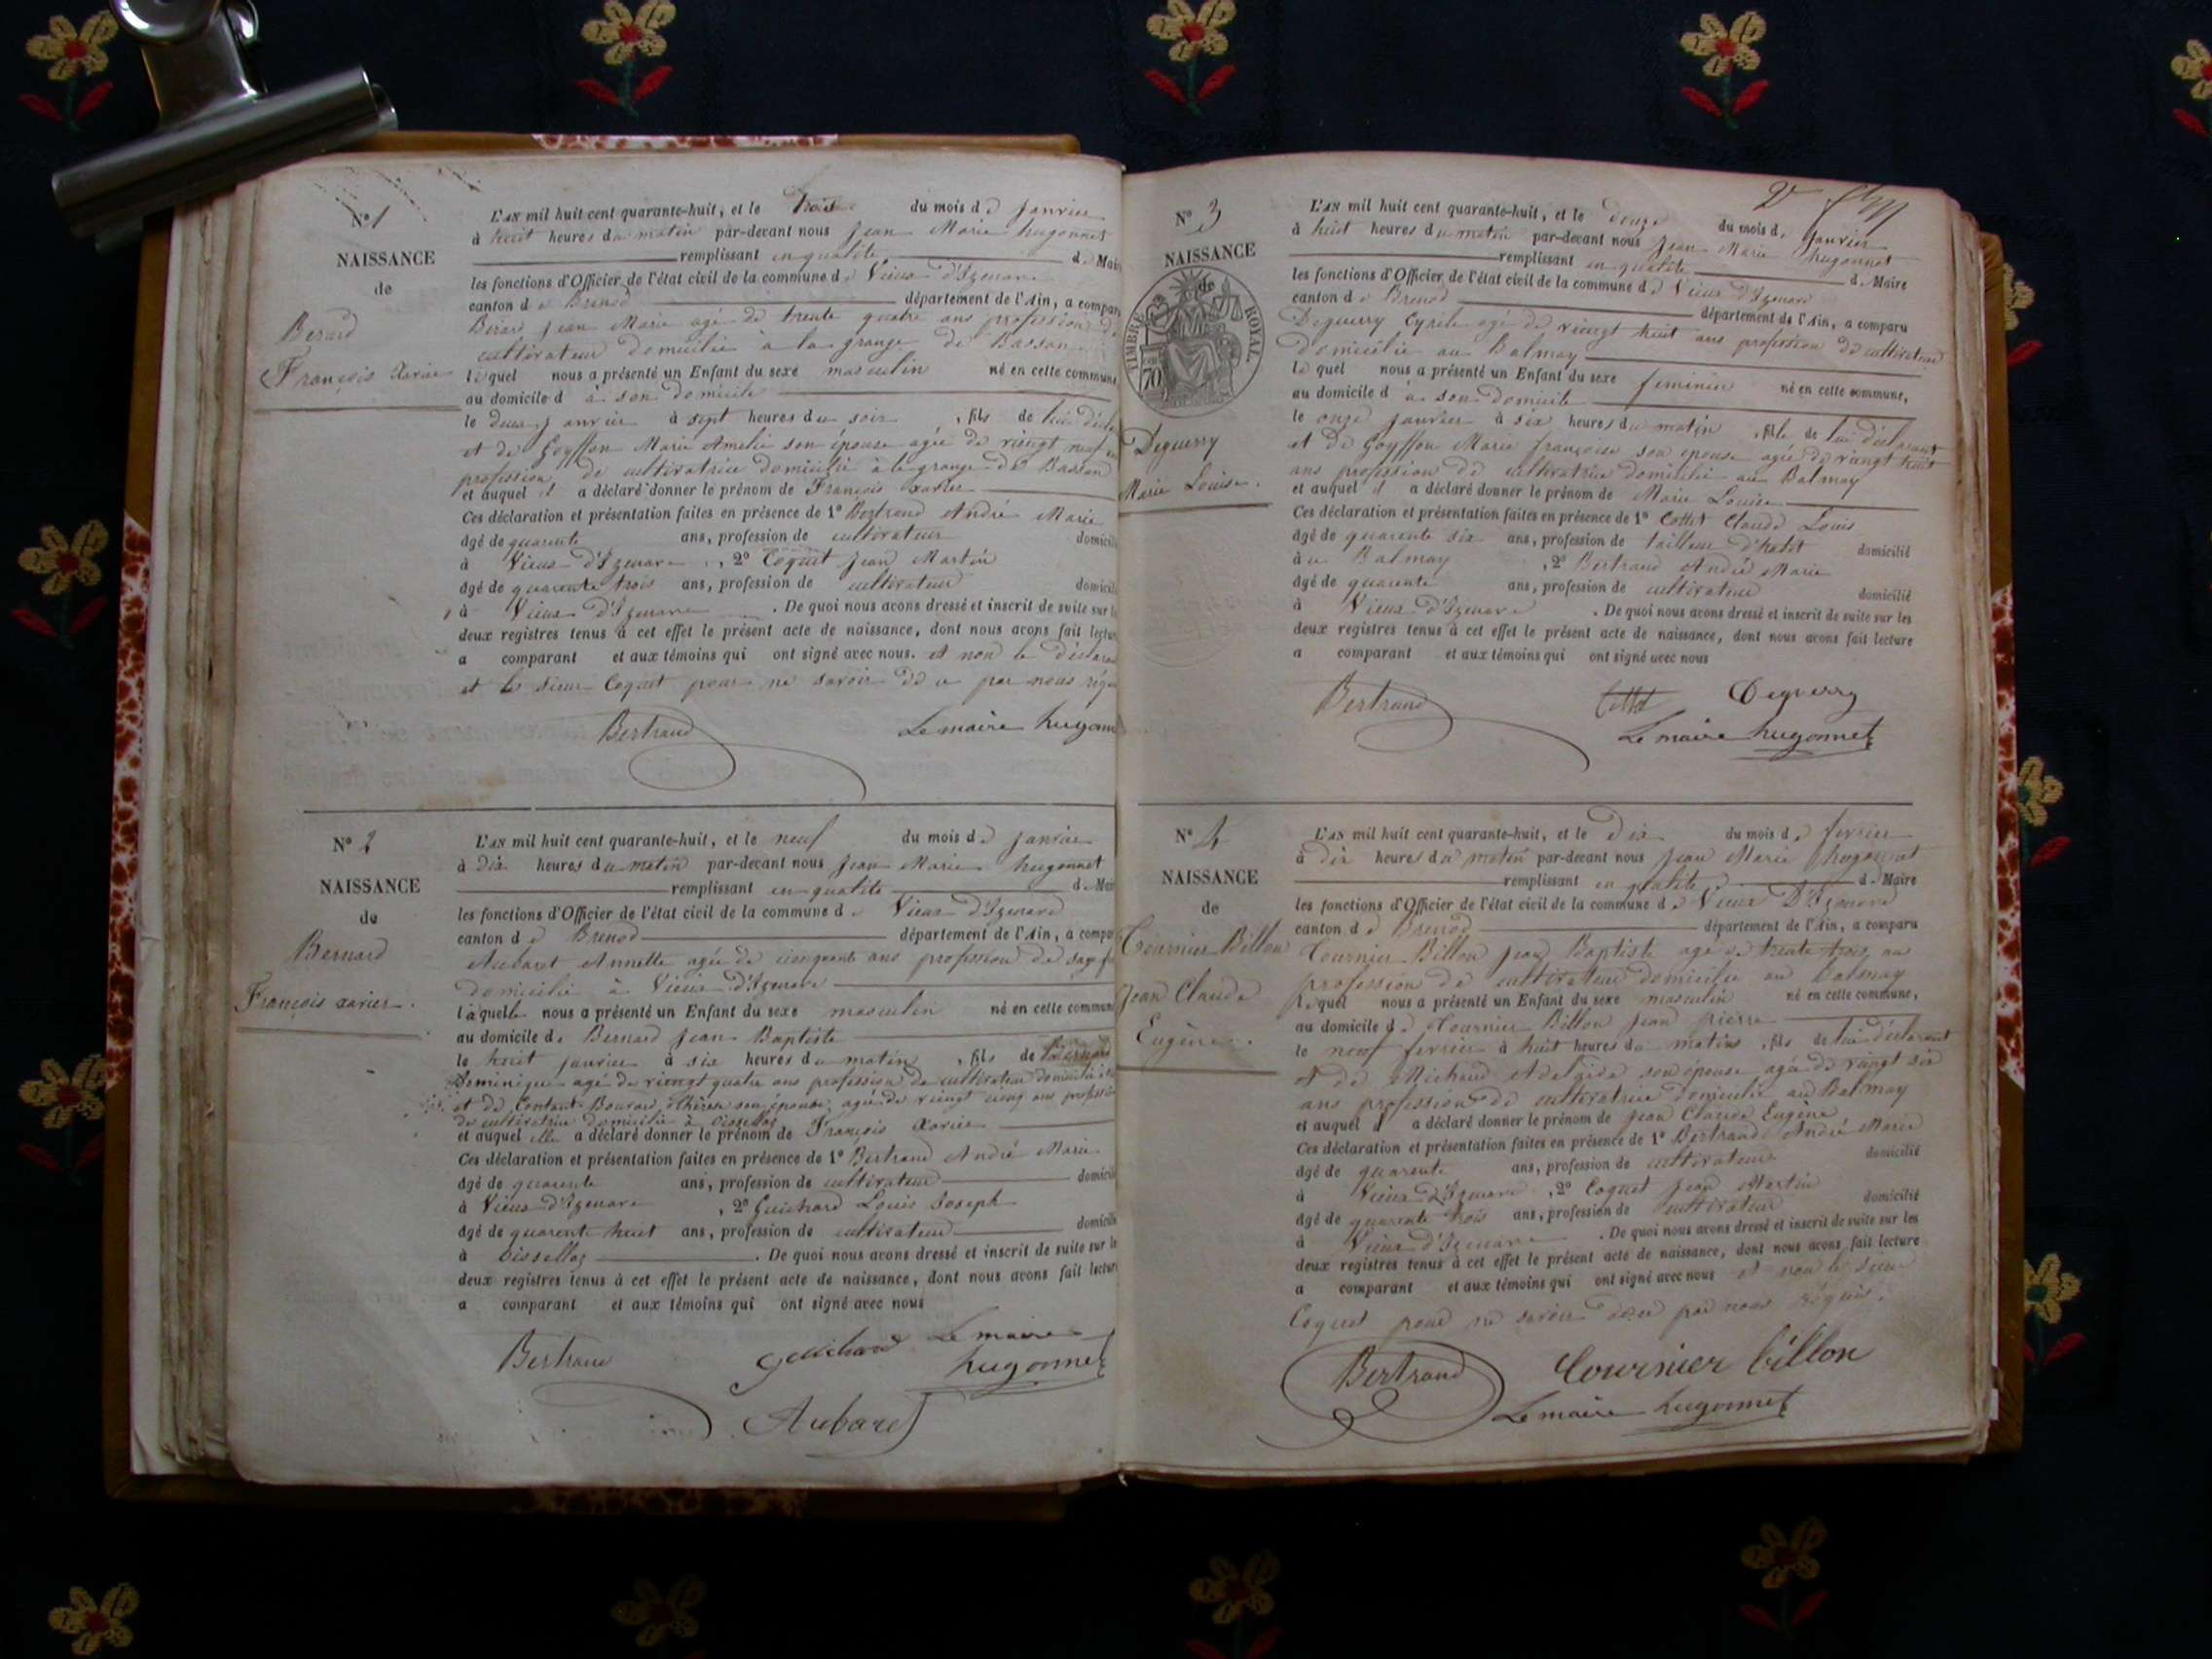 N° 1
NAISSANCE
de
Berard
François Xavier
L'AN mil huit cent quarante-huit, et le trois du mois de janvier
à huit heures du matin par-devant nous Jean Marie hugonnet
remplissant en qualité de Mai
les fonctions d'Officier de l'état civil de la commune de Vieux d'Izenave
canton de Brenod département de l'Ain, a compar
Berard Jean Marie agé de trente quatre ans profession de
cultivateur domicilié à la grange de Bassan
lequel nous a présenté un Enfant du sexe masculin né en cette commune
au domicile d à son domicile
le deux janvier à sept heures du soir, fils de lui décla
et de Goyffon Marie Amelie son épouse agée de vingt neuf
profession de cultivatrice domicilié à la grange de Bassan
et auquel il a déclaré donner le prénom de François xavier
Ces déclaration et présentation faites en présence de 1° Bertrand André Marie
âgé de quarente ans, profession de cultivateur domicil
à Vieux d'Izenave, 2° Coquet Jean Martin
âgé de quarente trois ans, profession de cultivateur domicil
à Vieux d'Izenave. De quoi nous avons dressé et inscrit de suite sur le
deux registres tenus à cet effet le présent acte de naissance, dont nous avons fait lectur
a comparant et aux témoins qui ont signé avec nous. et non le déclara
et le sieur Coquet pour ne savoir de ce par nous réq
Bertrand
Le maire hugonn
N° 2
NAISSANCE
de
Bernard
François xavier.
L'AN mil huit cent quarante-huit, et le neuf du mois de janvier
à dix heures du matin par-devant nous Jean Marie hugonnet
remplissant en qualité de Mai
les fonctions d'Officier de l'état civil de la commune de Vieux d'Izenave
canton de Brenod département de l'Ain, a compa
Aubaret Annette agée de cinquante ans profession de sage f
domicilié à Vieux d'Izenave
laquelle nous a présenté un Enfant du sexe masculin né en cette commun
au domicile de Bernard Jean Baptiste
le huit janvier à six heures du matin, fils de Bernard
Dominique agé de vingt quatre ans profession de cultivateur domicilié
et de Contant Bouvard Thérèse son épouse, agée de vingt cinq ans professi
de cultivatrice domicilié à Oissellaz
et auquel elle a déclaré donner le prénom de François Xavier
Ces déclaration et présentation faites en présence de 1° Bertrand André Marie
âgé de quarente ans, profession de cultivateur domicil
à Vieux d'Izenave, 2° Guichard Louis Joseph
âgé de quarente huit ans, profession de cultivateur domicili
à Oissellaz. De quoi nous avons dressé et inscrit de suite sur le
deux registres tenus à cet effet le présent acte de naissance, dont nous avons fait lectur
a comparant et aux témoins qui ont signé avec nous
Bertrand Guichard Le maire
hugonnet
Aubaret
N° 3
NAISSANCE
de
TIMBRE ROYAL
70
Deguerry
Marie Louise.
L'AN mil huit cent quarante-huit, et le douze du mois de janvier
à huit heures du matin par-devant nous Jean Marie hugonnet
remplissant en qualité de Maire
les fonctions d'Officier de l'état civil de la commune de Vieux d'Izenave
canton de Brenod département de l'Ain, a comparu
Deguerry Cyrile agé de vingt huit ans profession de cultivateur
domicilié au Balmay
lequel nous a présenté un Enfant du sexe feminin né en cette commune,
au domicile d à son domicile
le onze janvier à six heures du matin, fille de lui déclarant
et de Goyffon Marie françoise son épouse agée de vingt huit
ans profession de cultivatrice domicilié au Balmay
et auquel il a déclaré donner le prénom de Marie Louise
Ces déclaration et présentation faites en présence de 1° Cottet Claude Louis
âgé de quarente six ans, profession de tailleur d'habit domicilié
à u Balmay, 2° Bertrand André Marie
âgé de quarente ans, profession de cultivateur domicilié
à Vieux d'Izenave. De quoi nous avons dressé et inscrit de suite sur les
deux registres tenus à cet effet le présent acte de naissance, dont nous avons fait lecture
a comparant et aux témoins qui ont signé avec nous
Bertrand Cottet Deguerry
Le maire hugonnet
N° 4
NAISSANCE
de
Tournier Billon
Jean Claude
Eugène.
L'AN mil huit cent quarante-huit, et le dix du mois de fevrier
à dix heures du matin par-devant nous Jean Marie hugonnet
remplissant en qualité de Maire
les fonctions d'Officier de l'état civil de la commune de Vieux D'Izenave
canton de Brenod département de l'Ain, a comparu
Tournier Billon Jean Baptiste agé de trente trois ans
profession de cultivateur domicilié au balmay
lequel nous a présenté un Enfant du sexe masculin né en cette commune,
au domicile de Tournier Billon Jean pierre
le neuf fevrier à huit heures du matin, fils de lui déclarant
et de Michaud Adelaide son épouse agée de vingt six
ans profession de cultivatrice domicilié au Balmay
et auquel il a déclaré donner le prénom de Jean Claude Eugène
Ces déclaration et présentation faites en présence de 1° Bertrand André Marie
âgé de quarente ans, profession de cultivateur domicilié
à Vieux d'Izenave, 2° Coquet Jean Martin
âgé de quarente trois ans, profession de cultivateur domicilié
à Vieux d'Izenave. De quoi nous avons dressé et inscrit de suite sur les
deux registres tenus à cet effet le présent acte de naissance, dont nous avons fait lecture
a comparant et aux témoins qui ont signé avec nous et non le sieur
Coquet pour ne savoir de ce par nous réquis.
Bertrand Tournier billon
Le maire hugonnet